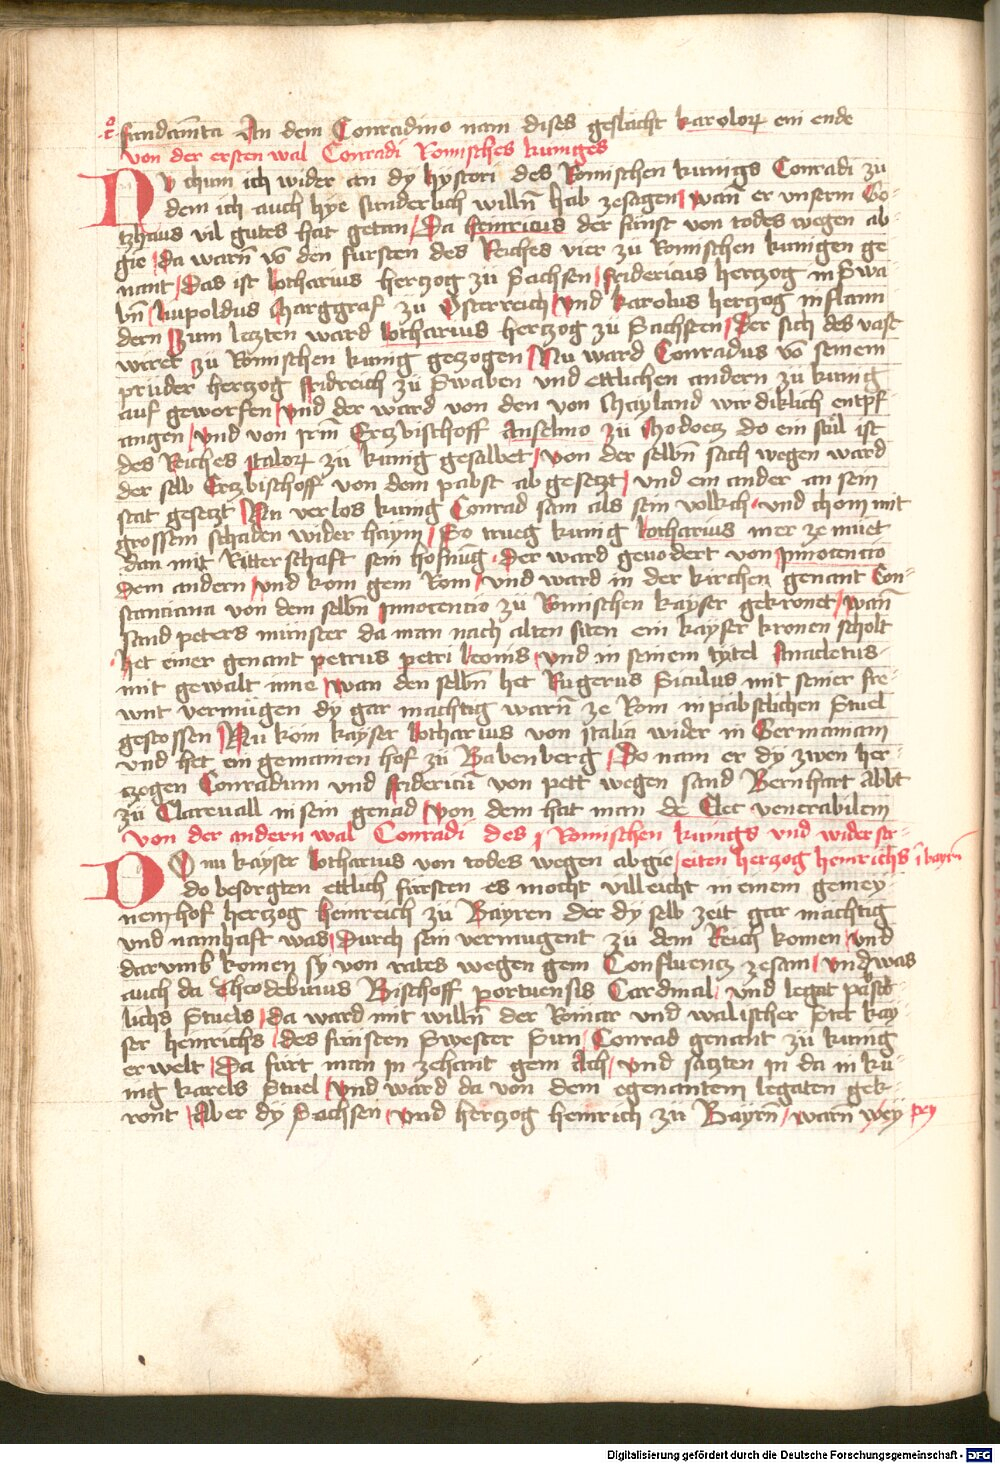 fundamēta An dem Conradino nam dises geslächt karolorꝫ ein ende
von der ersten wal Conradi Romisches kuniges
NV chum ich wider an dy hystori des Romischen kunigs Conradi zu
dem ich auch hye sunderlich willn̄ hab zesagen wan̄ er vnserm Go-
tzhaus vil gutes hat getan Da heinricus der funft von todes wegen ab
gie da warn̄ vō den fursten des Reiches vier zu Romischen kunigen ge
nant Das ist lotharius hertzog zu Sachsen fridericus hertzog in Swa
bn̄ lupoldus Marggraf zu Osterreich vnd karolus hertzog in flann
dern Zum letzten ward lotharius hertzog zu Sachssen Der sich des vast
wiret zu Romischen kunig getzogen Nu ward Conradus vō seinem
pruder hertzog fridreich zu Swaben vnd ettlichen andern zu kunig
auf geworfen vnd der ward von den von Mayland wirdiklich entpf-
angen vnd von irm̄ Ertzbischoff Anselmo zu Modoetz do ein stul ist
des Reiches italorꝫ zu kunig gesalbet von der selbn̄ sach wegen ward
der selb Ertzbischoff von dem pabst ab gesetzt vnd ein ander an sein
stat gesetzt Nu verlos kunig Conrad sam als sein volkch vnd chom mit
grossem schaden wider haym So trueg kunig lotharius mer ze muet
dan mit Ritterschaft sein hofnūg Der ward geuodert von Innocencio
dem andern vnd kom gem Rom vnd ward in der kirchen genant Con-
stanciana von dem selbn̄ Innocencio zu Romischen kayser gekronet wan̄
sand peters munster da man nach alten siten ein kayser kronen scholt
het einer genant petrus petri leonis vnd in seinem tytel Anacletus
mit gewalt inne wan den selbn̄ het Rugerus Siculus mit seiner fre-
wnt vermugen dy gar mächtig warn̄ ze Rom in päbstlichen Stuel
gestossen Nu kom kayser lotharius von Italia wider in Germaniam
vnd het ein gemainen hof zu Babenberg Do nam er dy zwen her-
tzogen Conradum vnd fridericū von pett wegen sand Bernhart abbt
zu Clareuall in sein genad von dem hat man de Elec venerabilem
von der andern wal Conradi des Romischen kunigs vnd widerser-
DO nu kayser lotharius von todes wegen ab gie eiten herzog heinrichs ī bayrn
do besorgten ettlich fursten es mocht villeicht in einem gemey-
nem hof hertzog heinreich zu Bayren der dy selb zeit gar mächtig
vnd namhaft was Durch sein vermugent zu dem Reich komen vnd
darumb komen sy von rates wegen gem Confluentz zesam vnd was
auch da Theodebinus Bischoff portuensis Cardinal vnd legat päbst-
lichs Stuels da ward mit willn̄ der Romer vnd walischer Stet kay
ser heinrichs des funften Swester Sun Conrad genant zu kunig
erwelt Da furt man in zehant gem Ach vnd satzten in da in ku-
nig karels Stuel vnd ward da von dem egenantem legaten gek-
ront Aber dy Sachsen vnd hertzog heinrich zu Bayrn̄ warn wey pey
Digitalisierung gefördert durch die Deutsche Forschungsgemeinschaft - DFG